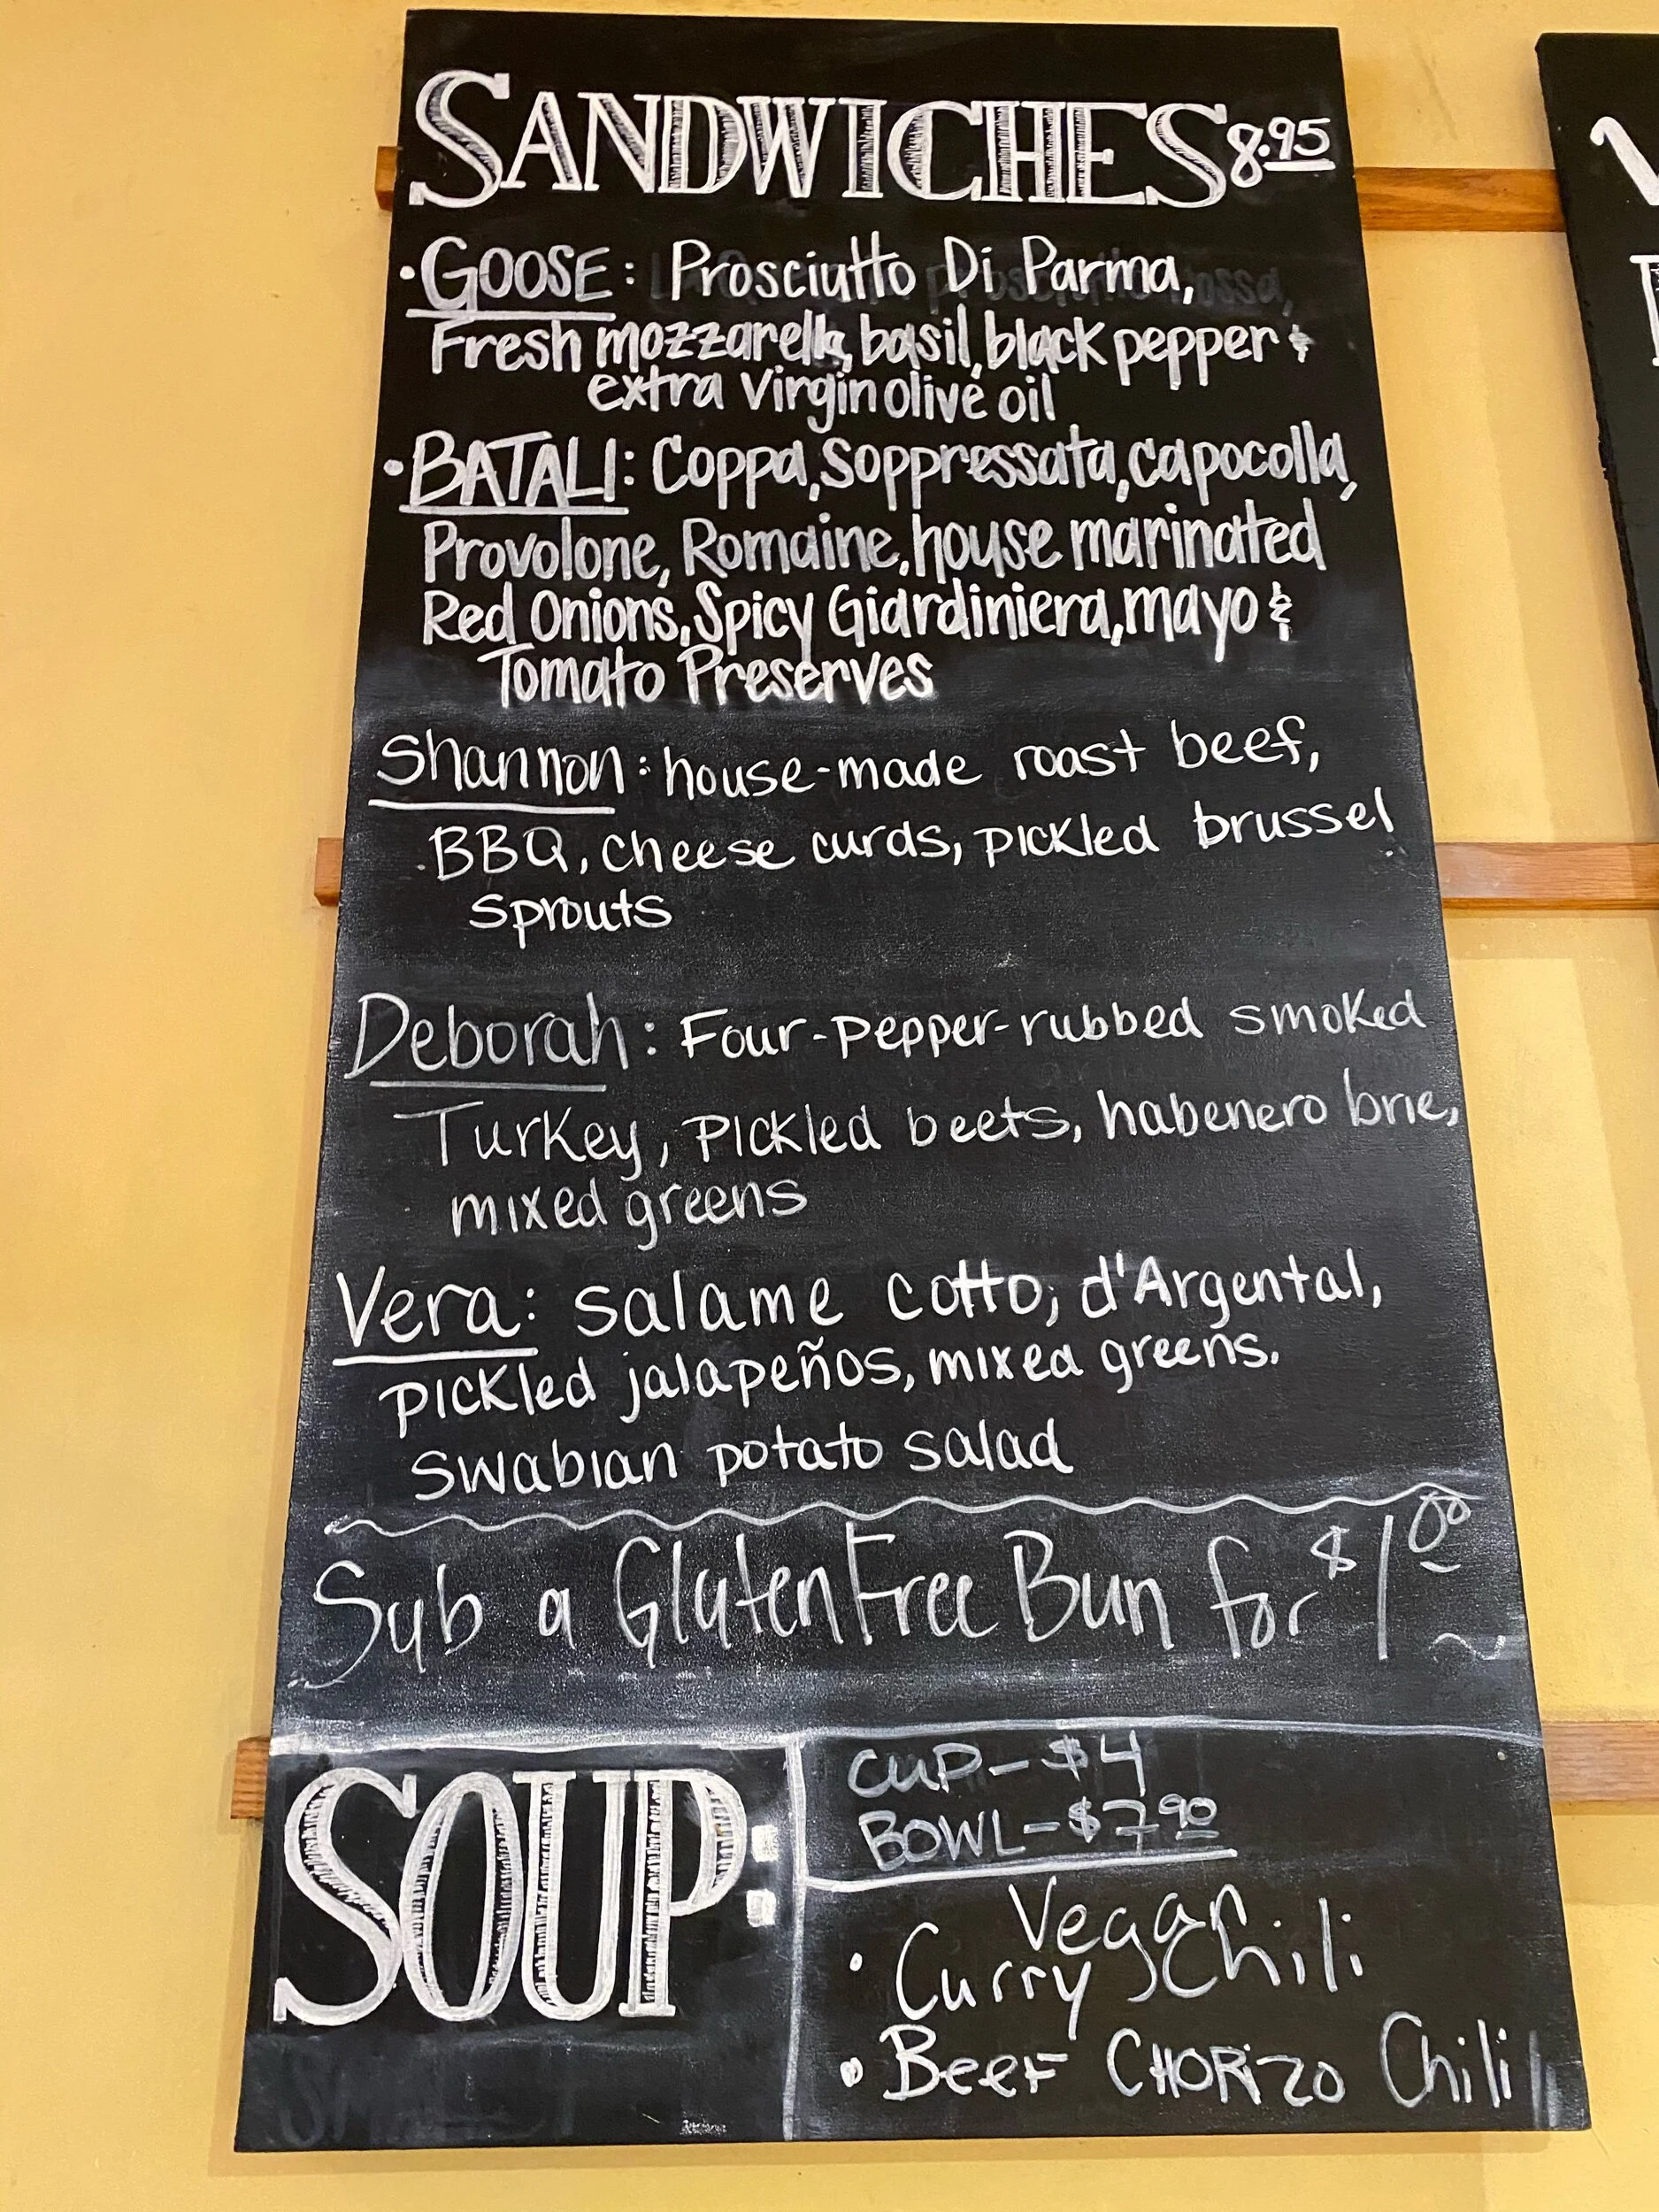 SANDWICHES 8.95
• GOOSE: Prosciutto Di Parma,
Fresh mozzarella, basil, black pepper &
extra virgin olive oil
• BATALI: Coppa, Soppressata, capocolla,
Provolone, Romaine, house marinated
Red Onions, Spicy Giardiniera, mayo &
Tomato Preserves
Shannon: house-made roast beef,
BBQ, cheese curds, pickled brussel
sprouts
Deborah: Four-pepper-rubbed smoked
Turkey, pickled beets, habenero brie,
mixed greens
Vera: salame cotto, d'Argental,
pickled jalapeños, mixed greens.
Swabian potato salad
Sub a Gluten Free Bun for $1.00
SOUP:
CUP - $4
BOWL - $7.90
Vegan
• Curry Chili
• Beef CHORIZO Chili